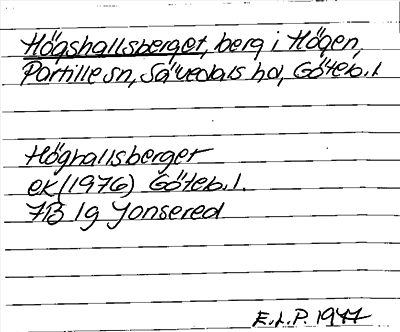 Högshallsberget, berg i Högen,
Partille sn, Sävedals hd, Göteb. l.
Höghallsberget
ek (1976) Göteb. l.
7B 1g Jonsered
E.L.P. 1977